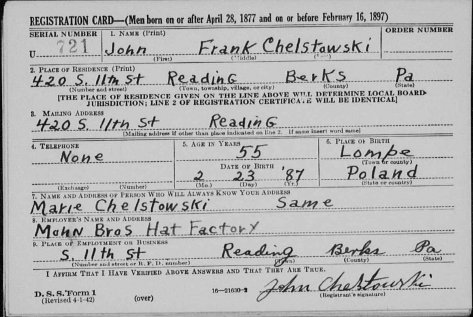 REGISTRATION CARD—(Men born on or after April 28, 1877 and on or before February 16, 1897)
SERIAL NUMBER 1. NAME (Print) ORDER NUMBER
U 721 John Frank Chelstowski
(First) (Middle) (Last)
2. PLACE OF RESIDENCE (Print)
420 S. 11th St Reading Berks Pa
(Number and street) (Town, township, village, or city) (County) (State)
[THE PLACE OF RESIDENCE GIVEN ON THE LINE ABOVE WILL DETERMINE LOCAL BOARD
JURISDICTION; LINE 2 OF REGISTRATION CERTIFICATE WILL BE IDENTICAL]
3. MAILING ADDRESS
420 S. 11th St Reading
[Mailing address if other than place indicated on line 2. If same insert word same]
4. TELEPHONE 5. AGE IN YEARS 6. PLACE OF BIRTH
None 55 Lompe
DATE OF BIRTH (Town or county)
2 23 '87 Poland
(Exchange) (Number) (Mo.) (Day) (Yr.) (State or country)
7. NAME AND ADDRESS OF PERSON WHO WILL ALWAYS KNOW YOUR ADDRESS
Marie Chelstowski Same
8. EMPLOYER'S NAME AND ADDRESS
Mohn Bros Hat Factory
9. PLACE OF EMPLOYMENT OR BUSINESS
S. 11th St Reading Berks Pa
(Number and street or R. F. D. number) (Town) (County) (State)
I AFFIRM THAT I HAVE VERIFIED ABOVE ANSWERS AND THAT THEY ARE TRUE.
D. S. S. Form 1
(Revised 4-1-42) (over) 16—21630-2 John Chelstowski
(Registrant's signature)